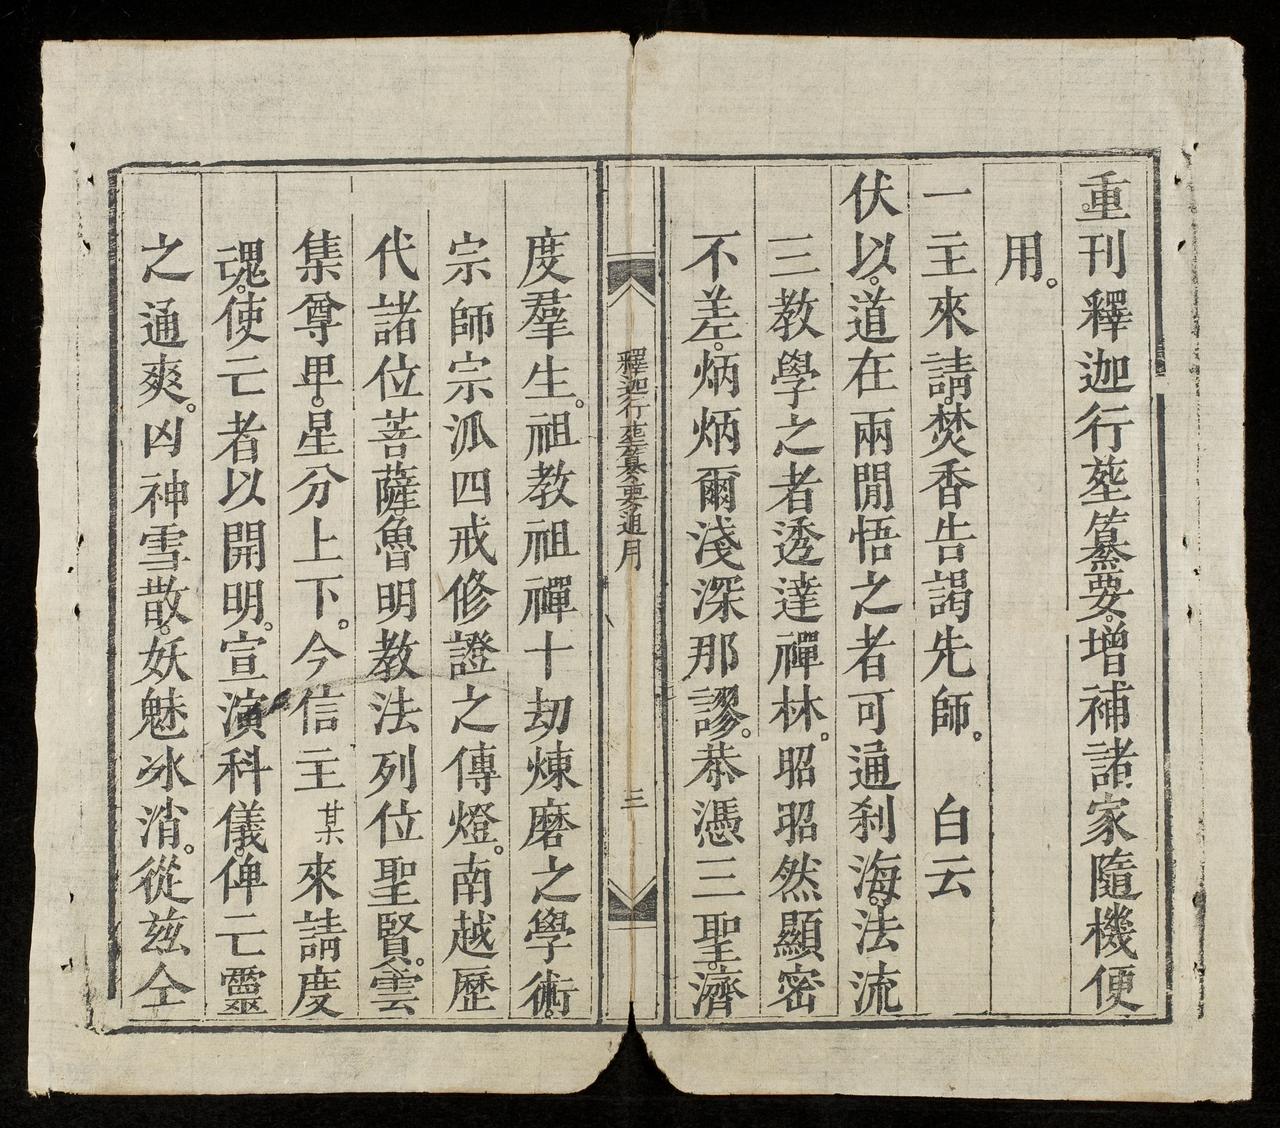 重刊釋迦行塟纂要。增補諸家隨機便
用。
一主來請。焚香告謁先師。 白云
伏以。道在兩閒悟之者可通刹海。法流
三教學之者透達禪林。昭昭然顯密
不差。炳炳爾淺深那謬。恭憑三聖。濟
釋迦行塟纂要通用 三
度羣生。祖教祖禪十劫煉磨之學術。
宗師宗派四戒修證之傳燈。南越歷
代諸位菩薩魯明教法列位聖賢。雲
集尊卑。星分上下。今信主某來請度
魂。使亡者以開明。宣演科儀。俾亡靈
之通爽。凶神雪散。妖魅冰消。從兹仝